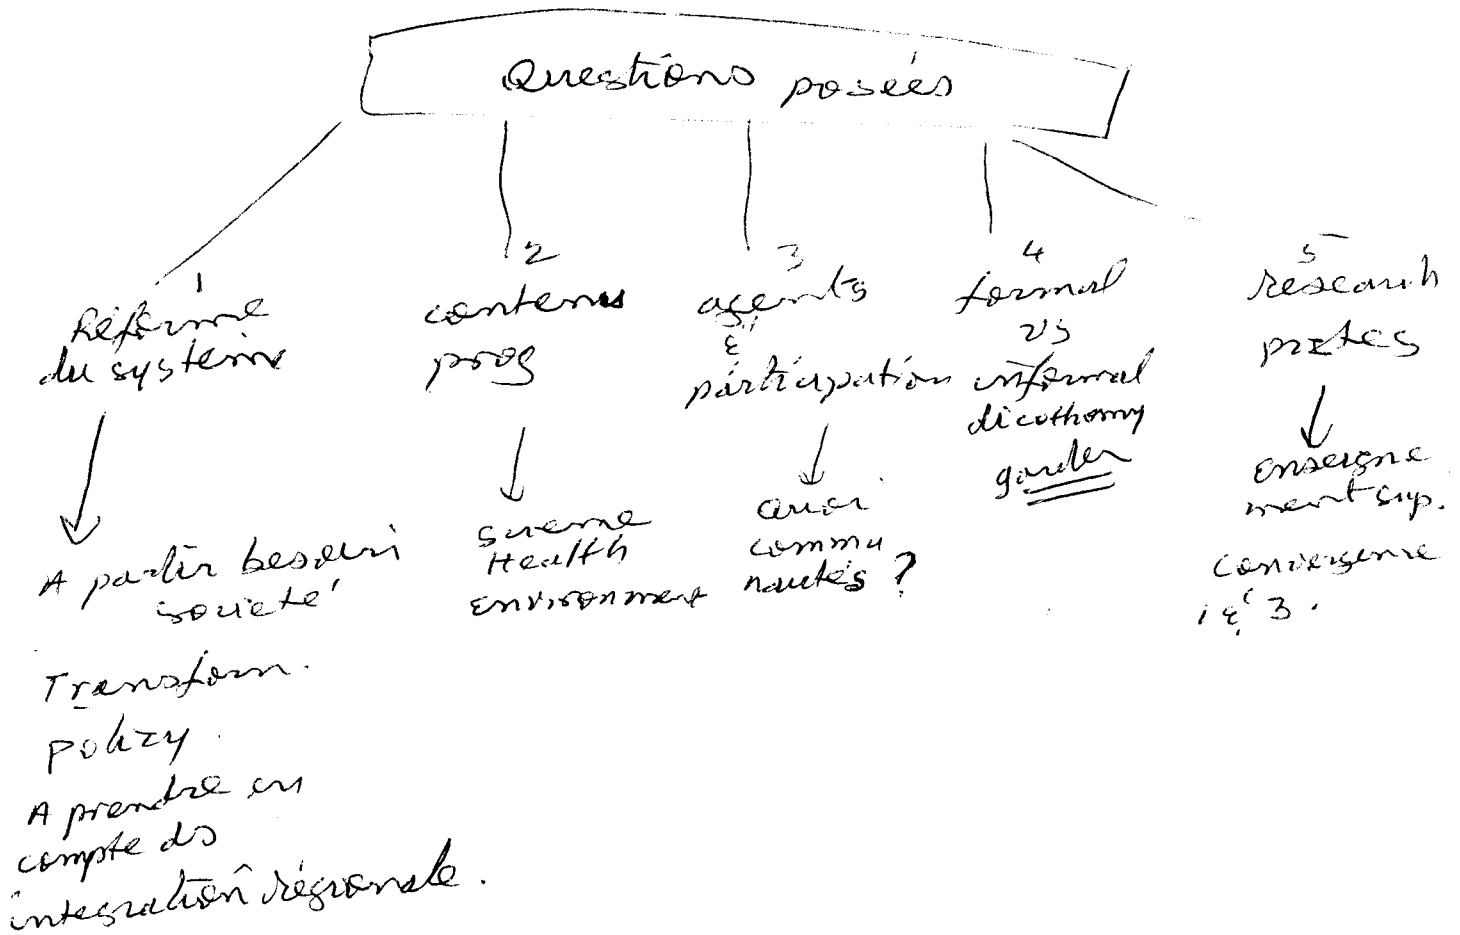 Questions posées
1
Réforme
du système
A partir besoin
société
Transform.
policy.
A prendre en
compte ds
intégration régionale.
2
contenu
prog
science
Health
environment
3
agents
&
participation
quoi
commu
nautés ?
4
formal
vs
informal
dicothomy
garder
5
research
Enseigne
ment sup.
convergence
1 & 3.